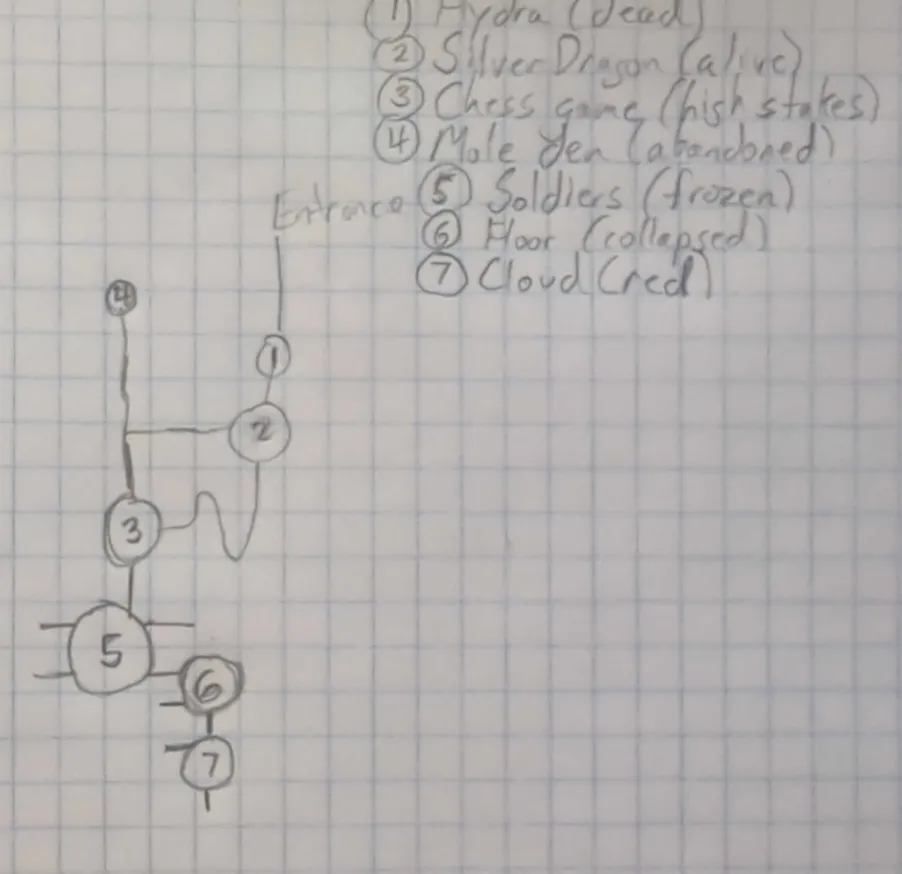 ① Hydra (dead)
② Silver Dragon (alive)
③ Chess game (high stakes)
④ Mole den (abandoned)
Entrance ⑤ Soldiers (frozen)
⑥ Floor (collapsed)
⑦ Cloud (red)
④
①
②
③
⑤
⑥
⑦